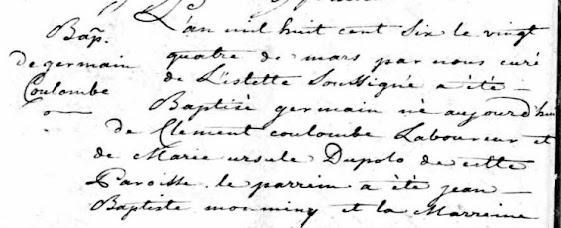 Bap.
de germain
Coulombe
L'an mil huit cent six le vingt
quatre de mars par nous curé
de L'islette Soussigné a été
Baptisé germain né aujourd'hui
de Clement coulombe Laboureur et
de Marie ursule Dupolo de cette
Paroisse. le parrein a été jean
Baptiste et la Marreine